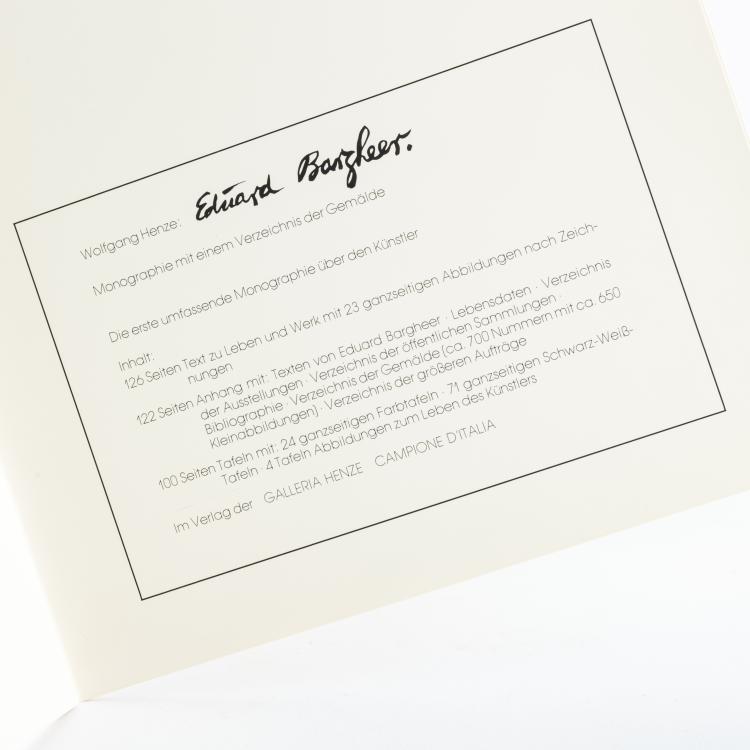 Wolfgang Henze: Eduard Bargheer.
Monographie mit einem Verzeichnis der Gemälde
Die erste umfassende Monographie über den Künstler
Inhalt:
126 Seiten Text zu Leben und Werk mit 23 ganzseitigen Abbildungen nach Zeich-
nungen
122 Seiten Anhang mit: Texten von Eduard Bargheer · Lebensdaten · Verzeichnis
der Ausstellungen · Verzeichnis der öffentlichen Sammlungen ·
Bibliographie · Verzeichnis der Gemälde [ca. 700 Nummern mit ca. 650
Kleinabbildungen] · Verzeichnis der größeren Aufträge
100 Seiten Tafeln mit: 24 ganzseitigen Farbtafeln · 71 ganzseitigen Schwarz-Weiß-
Tafeln · 4 Tafeln Abbildungen zum Leben des Künstlers
Im Verlag der GALLERIA HENZE CAMPIONE D'ITALIA